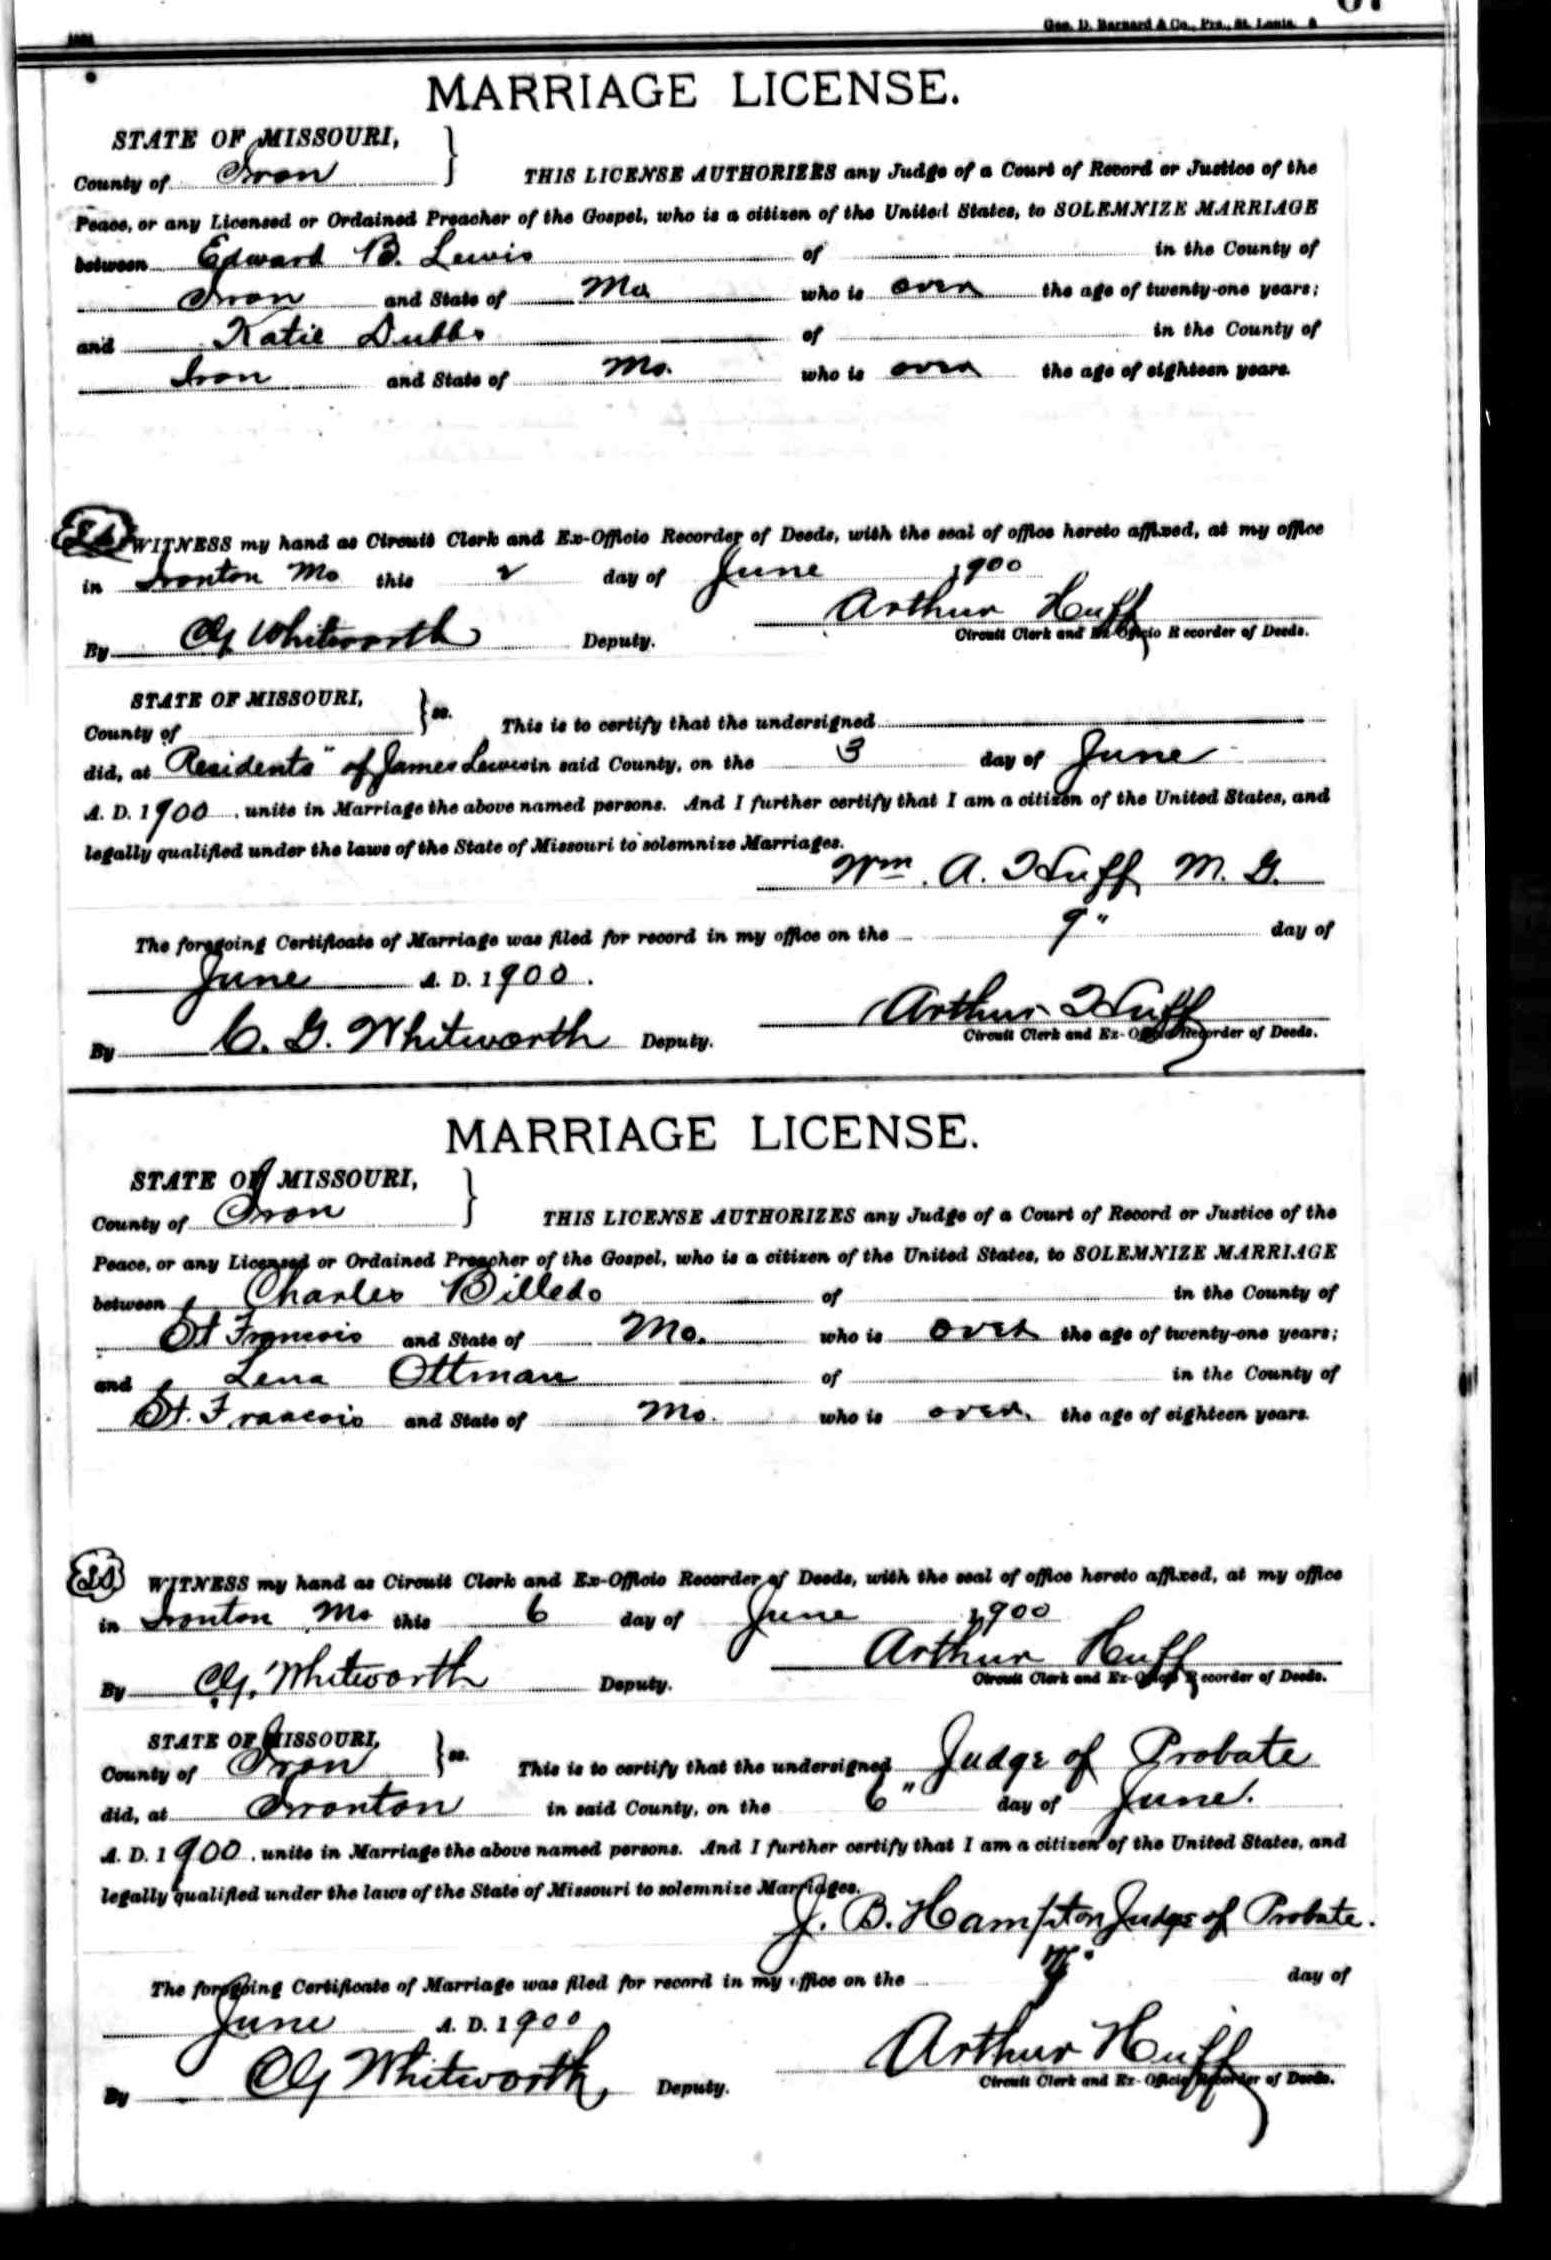 Geo. D. Barnard & Co., Prs., St. Louis.
MARRIAGE LICENSE.
STATE OF MISSOURI,
County of Iron } THIS LICENSE AUTHORIZES any Judge of a Court of Record or Justice of the
Peace, or any Licensed or Ordained Preacher of the Gospel, who is a citizen of the United States, to SOLEMNIZE MARRIAGE
between Edward B. Lewis of in the County of
Iron and State of Mo who is over the age of twenty-one years;
and Katie Dubbs of in the County of
Iron and State of Mo. who is over the age of eighteen years.
WITNESS my hand as Circuit Clerk and Ex-Officio Recorder of Deeds, with the seal of office hereto affixed, at my office
in Ironton Mo this 2 day of June 1900
Arthur Huff
By CG Whitworth Deputy. Circuit Clerk and Ex-Officio Recorder of Deeds.
STATE OF MISSOURI,
County of } ss. This is to certify that the undersigned
did, at Residents" of James Lewis in said County, on the 3 day of June
A. D. 1900, unite in Marriage the above named persons. And I further certify that I am a citizen of the United States, and
legally qualified under the laws of the State of Missouri to solemnize Marriages.
Wm. A. Huff M. G.
The foregoing Certificate of Marriage was filed for record in my office on the 9" day of
June A. D. 1900.
Arthur Huff
By C. G. Whitworth Deputy. Circuit Clerk and Ex-Officio Recorder of Deeds.
MARRIAGE LICENSE.
STATE OF MISSOURI,
County of Iron } THIS LICENSE AUTHORIZES any Judge of a Court of Record or Justice of the
Peace, or any Licensed or Ordained Preacher of the Gospel, who is a citizen of the United States, to SOLEMNIZE MARRIAGE
between Charles Billedo of in the County of
St Francois and State of Mo. who is over the age of twenty-one years;
and Lena Ottman of in the County of
St. Francois and State of Mo. who is over the age of eighteen years.
LS WITNESS my hand as Circuit Clerk and Ex-Officio Recorder of Deeds, with the seal of office hereto affixed, at my office
in Ironton Mo this 6 day of June 1900
Arthur Huff
By CG. Whitworth Deputy. Circuit Clerk and Ex-Officio Recorder of Deeds.
STATE OF MISSOURI,
County of Iron } ss. This is to certify that the undersigned Judge of Probate
did, at Ironton in said County, on the 6" day of June.
A. D. 1900, unite in Marriage the above named persons. And I further certify that I am a citizen of the United States, and
legally qualified under the laws of the State of Missouri to solemnize Marriages.
J. B. Hampton Judge of Probate.
The foregoing Certificate of Marriage was filed for record in my office on the day of
June A. D. 1900
Arthur Huff
By CG Whitworth, Deputy. Circuit Clerk and Ex-Officio Recorder of Deeds.